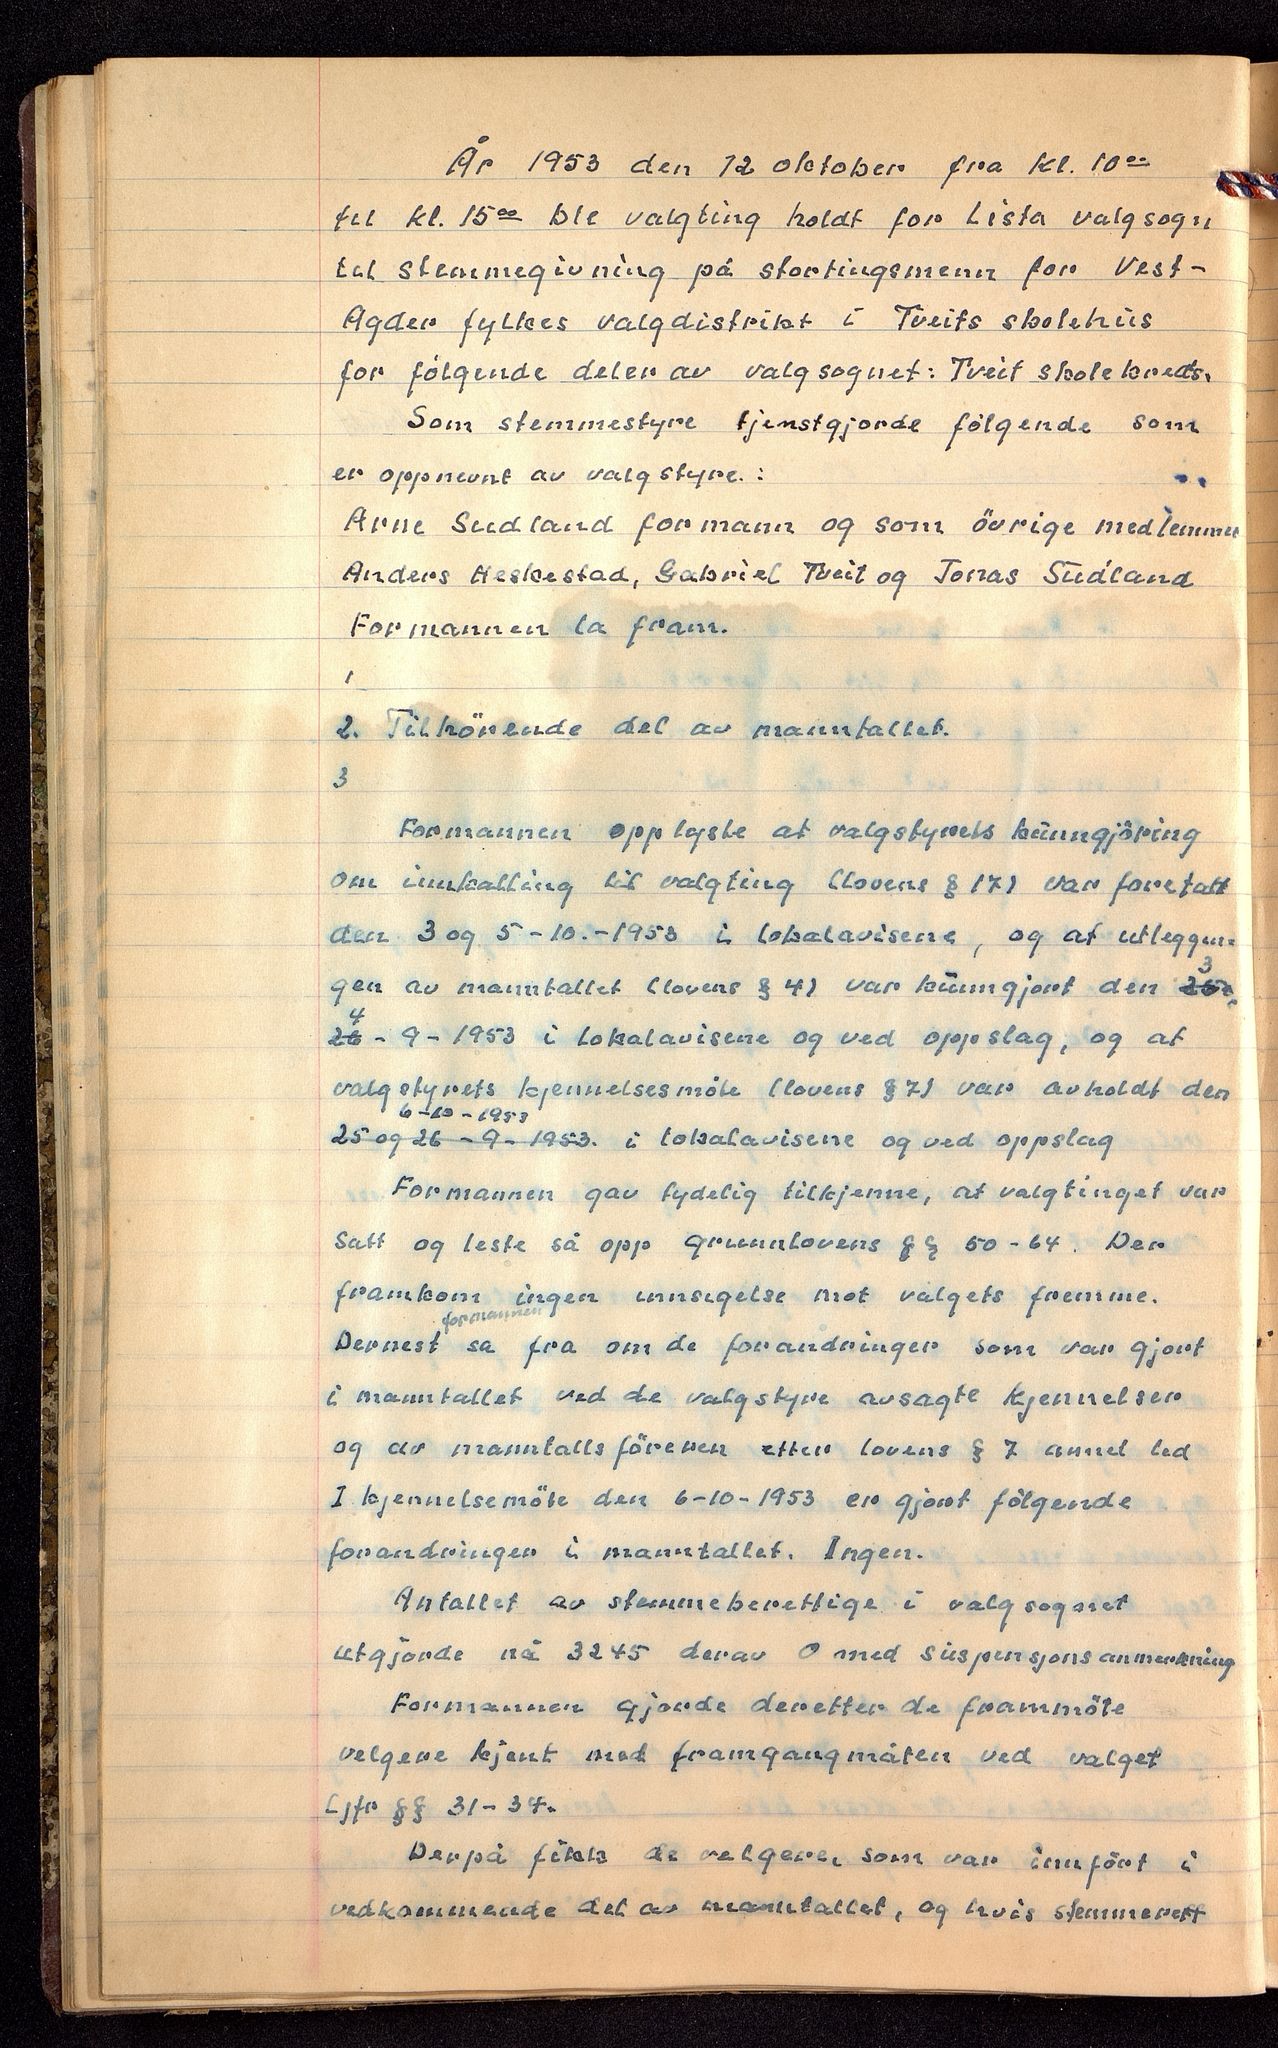 År 1953 den 12 oktober fra kl. 10⁰⁰
til kl. 15⁰⁰ ble valgting holdt for Lista valgsogn
til stemmegivning på stortingsmenn for Vest-
Agder fylkes valgdistrikt i Tveits skolehus
for følgende deler av valgsognet: Tveit skolekreds.
Som stemmestyre tjenstgjorde følgende som
er oppnevnt av valgstyre.:
Arne Sudland formann og som övrige medlemmer
Anders Heskestad, Gabriel Tveit og Jonas Sudland
Formannen la fram.
1
2. Tilhörende del av manntallet.
3
Formannen opplyste at valgstyrets kunngjöring
om innkalling til valgting (lovens § 17) var foretatt
den 3 og 5-10.-1953 i lokalavisene, og at utleggin-
3
gen av manntallet (lovens § 4) var kunngjort den 25
4
26 - 9 - 1953 i lokalavisene og ved oppslag, og at
valgstyrets kjennelsesmöte (lovens § 7) var avholdt den
6-10-1953
25 og 26 - 9 - 1953. i lokalavisene og ved oppslag
Formannen gav tydelig tilkjenne, at valgtinget var
satt og leste så opp grunnlovens §§ 50-64. Der
framkom ingen innsigelse mot valgets fremme.
formannen
Dernest sa fra om de forandringer som var gjort
i manntallet ved de valgstyre avsagte kjennelser
og av manntallsföreren etter lovens § 7 annet led
I kjennelsemöte den 6-10-1953 er gjort fölgende
forandringer i manntallet. Ingen.
Antallet av stemmeberettige i valgsognet
utgjorde nå 3245 derav 0 med suspensjonsanmerkning
Formannen gjorde deretter de frammöte
velgere kjent med framgangmåten ved valget
(jfr §§ 31-34.
Derpå fikk de velgere, som var innfört i
vedkommende del av manntallet, og hvis stemmerett